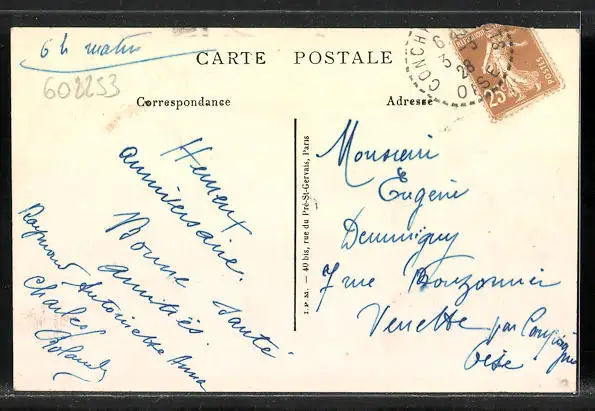 6 h matin
602253
CARTE POSTALE
Correspondance
Adresse
Heureux
anniversaire.
Bonne santé
amitiés.
Raymond Antoinette Anna
Charles
I.P.M. — 40 bis, rue du Pré-St-Gervais, Paris
CONCH
28
OISE
POSTES
25c
Monsieur
Eugène
7 rue
Venette par Compiègne
Oise